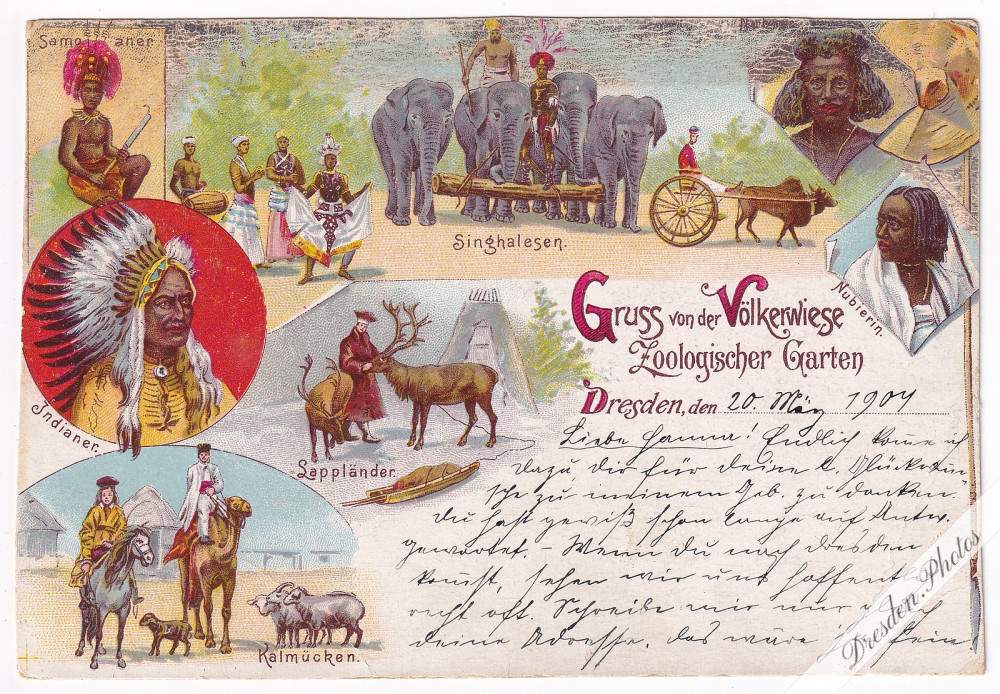 Samoaner.
Singhalesen.
Nubier.
Nubierin.
Indianer.
Lappländer.
Kalmücken.
Gruss von der Völkerwiese
Zoologischer Garten
Dresden, den 20. März 1904
Liebe Hanna! Endlich komme ich
dazu dir für deine l. Glückwün
sche zu meinem Geb. zu danken.
Du hast gewiß schon lange auf Antw.
gewartet. – Wenn du nach Dresden
kommst, sehen wir uns hoffentl.
recht oft. Schreibe mir nur
deine Adresse. das wäre fein
Dresden.Photos